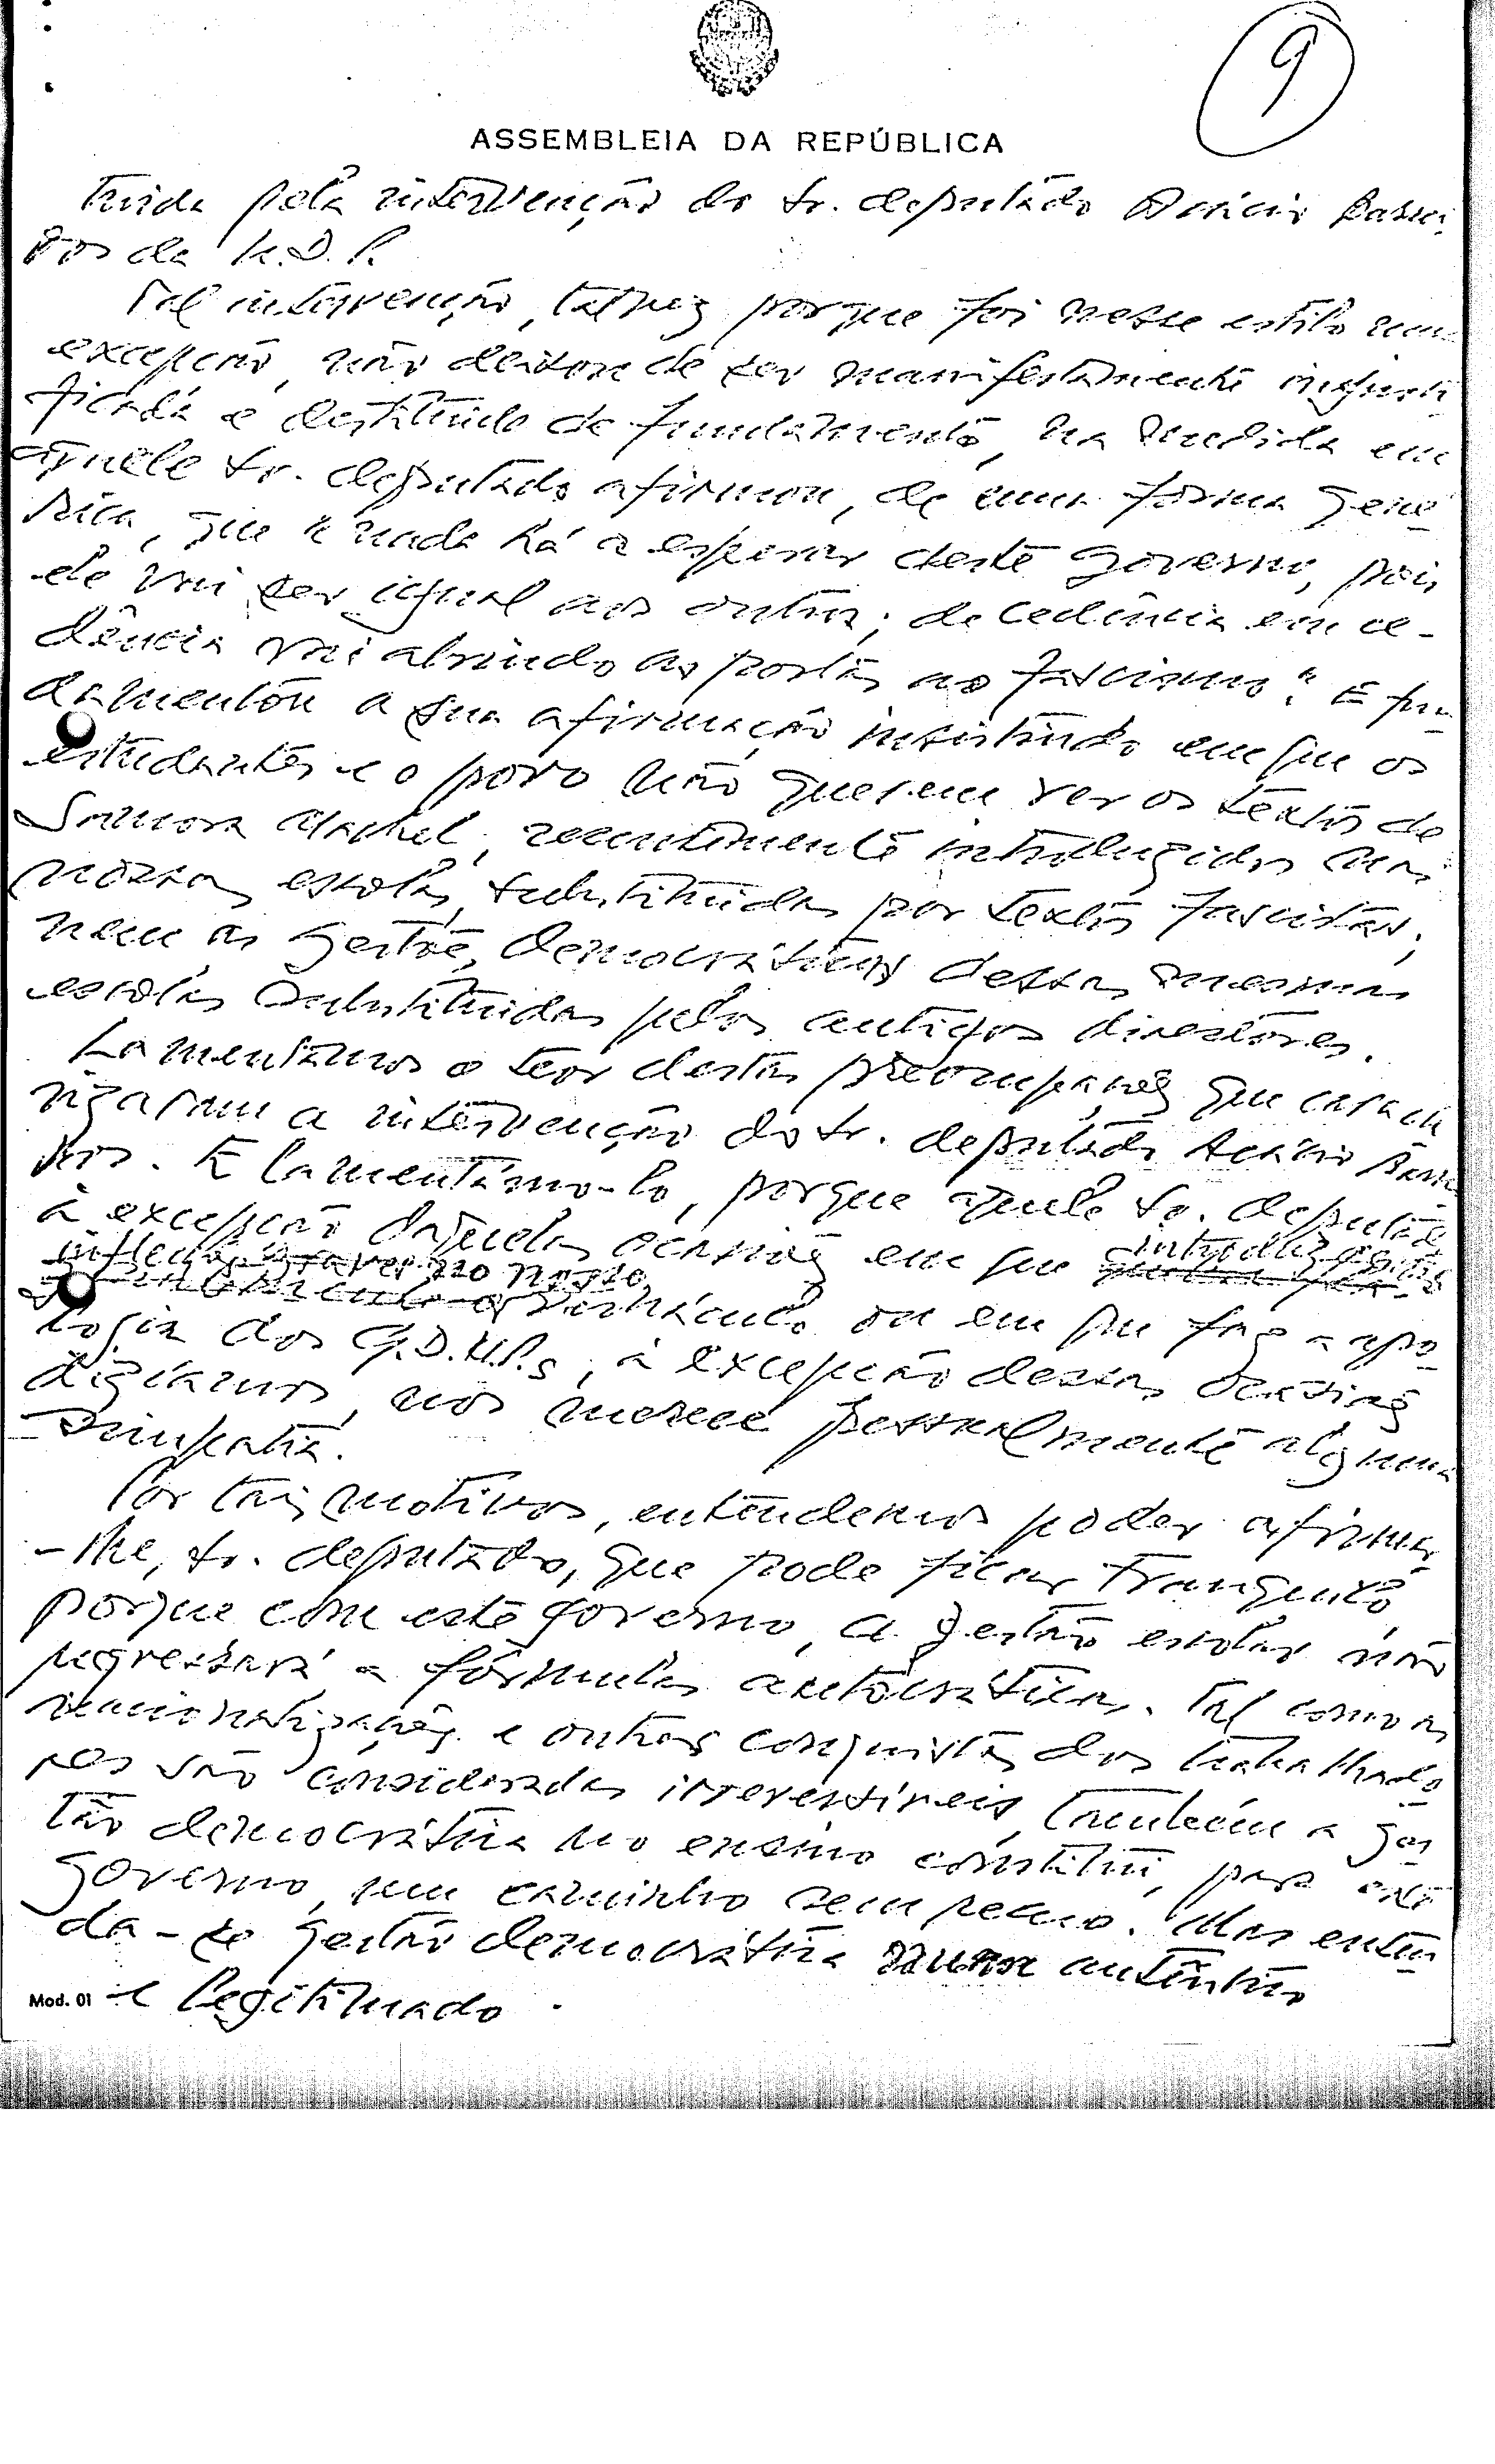 9
ASSEMBLEIA DA REPÚBLICA
tuida pela intervenção do sr. deputado Acácio Barrei,
ros da U.D.P.
Tal intervenção, talvez porque foi nesse estilo uma
excepção, não deixou de ser manifestamente injusti
ficada e destituída de fundamento, na medida em
aquele sr. deputado afirmou, de uma forma gené
rica, que "nada há a esperar deste governo, pois
ele vai ser igual aos outros; de cedência em ce-
dência vai abrindo as portas ao fascismo". E fun
damentou a sua afirmação insistindo em que os
estudantes e o povo não querem ver os textos de
Samora Machel, recentemente introduzidos nas
nossas escolas, substituidos por textos fascistas;
nem as gestões democráticas dessas mesmas
escolas substituidas pelos antigos directores.
Lamentamos o teor destas preocupações que caracte
rizaram a intervenção do sr. deputado Acácio Barrei
ros. E lamentámo-lo, porque aquele sr. deputado
à excepção daquelas ocasiões em que introduz
inflexões graves no nosso
vernáculo ou em que faz a apo-
logia dos G.D.U.P.s, à excepção dessas ocasiões
dizíamos, nos merece pessoalmente alguma
simpatia.
Por tais motivos, entendemos poder afirmar
-lhe, sr. deputado, que pode ficar tranquilo
porque com este governo, a gestão escolar não
regressará a fórmulas autocráticas. Tal como as
nacionalizações e outras conquistas dos trabalhado
res são consideradas irreversíveis, também a ges
tão democrática no ensino constitui, para este
governo, um caminho sem recuo. Mas enten
da-se gestão democrática num autêntico
e legitimado.
Mod. 01